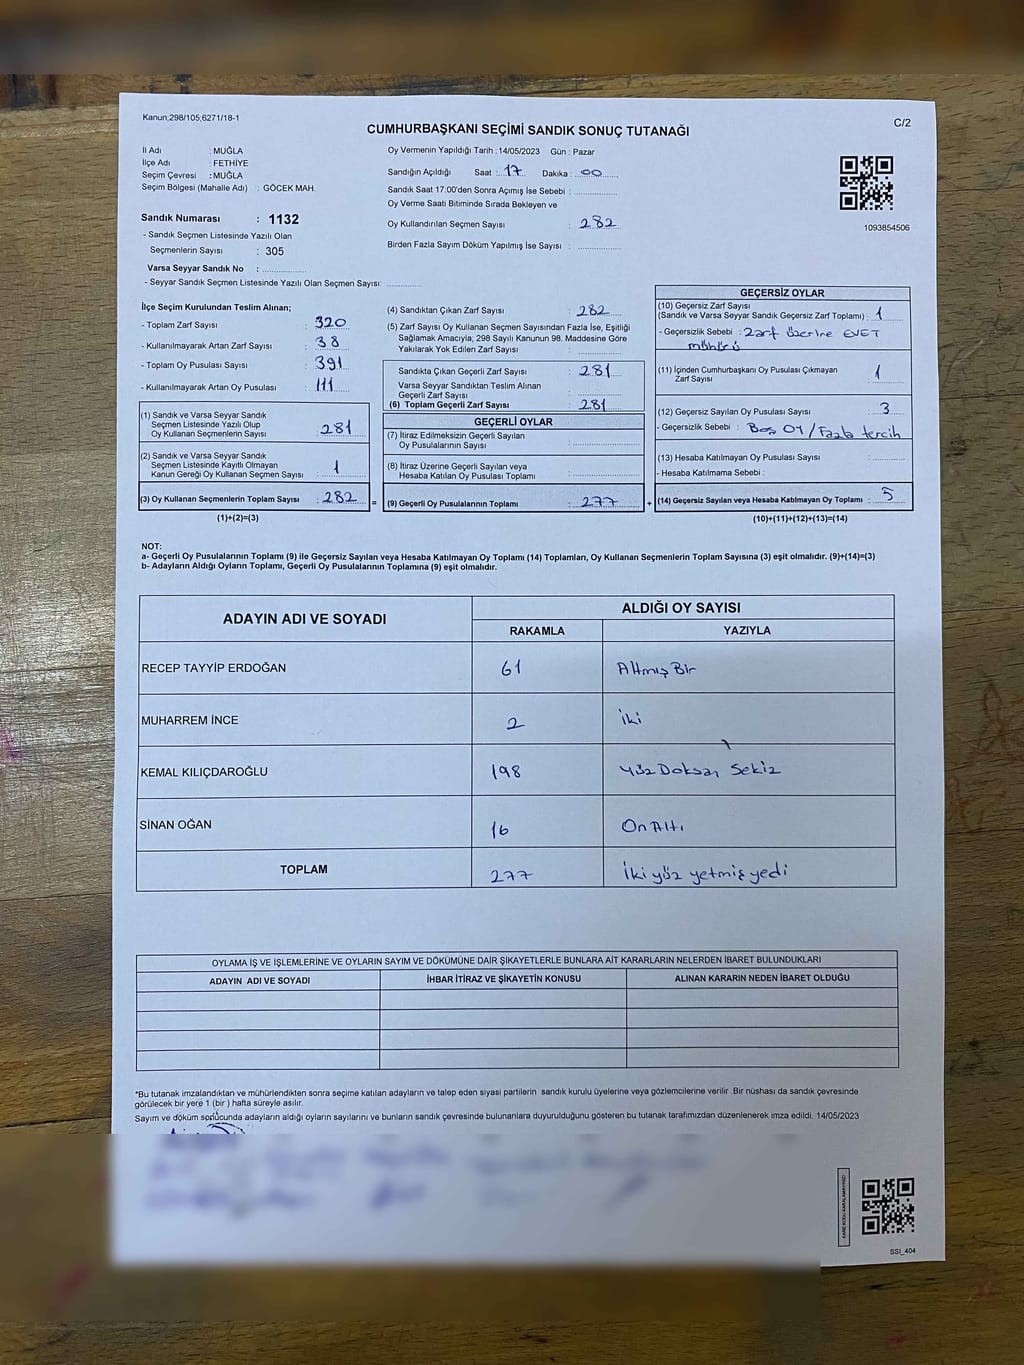 Kanun;298/105;6271/18-1
C/2
CUMHURBAŞKANI SEÇİMİ SANDIK SONUÇ TUTANAĞI
İl Adı : MUĞLA
İlçe Adı : FETHİYE
Seçim Çevresi : MUĞLA
Seçim Bölgesi (Mahalle Adı) : GÖCEK MAH.
Sandık Numarası : 1132
- Sandık Seçmen Listesinde Yazılı Olan
Seçmenlerin Sayısı : 305
Varsa Seyyar Sandık No :
- Seyyar Sandık Seçmen Listesinde Yazılı Olan Seçmen Sayısı:
Oy Vermenin Yapıldığı Tarih :14/05/2023 Gün : Pazar
Sandığın Açıldığı Saat : 17 Dakika : 00
Sandık Saat 17:00'den Sonra Açımış İse Sebebi :
Oy Verme Saati Bitiminde Sırada Bekleyen ve
Oy Kullandırılan Seçmen Sayısı : 282
Birden Fazla Sayım Döküm Yapılmış İse Sayısı :
1093854506
İlçe Seçim Kurulundan Teslim Alınan;
- Toplam Zarf Sayısı : 320
- Kullanılmayarak Artan Zarf Sayısı : 38
- Toplam Oy Pusulası Sayısı : 391
- Kullanılmayarak Artan Oy Pusulası : 111
(1) Sandık ve Varsa Seyyar Sandık
Seçmen Listesinde Yazılı Olup
Oy Kullanan Seçmenlerin Sayısı : 281
(2) Sandık ve Varsa Seyyar Sandık
Seçmen Listesinde Kayıtlı Olmayan
Kanun Gereği Oy Kullanan Seçmen Sayısı : 1
(3) Oy Kullanan Seçmenlerin Toplam Sayısı : 282 =
(1)+(2)=(3)
(4) Sandıktan Çıkan Zarf Sayısı : 282
(5) Zarf Sayısı Oy Kullanan Seçmen Sayısından Fazla İse, Eşitliği
Sağlamak Amacıyla; 298 Sayılı Kanunun 98. Maddesine Göre
Yakılarak Yok Edilen Zarf Sayısı :
Sandıkta Çıkan Geçerli Zarf Sayısı : 281
Varsa Seyyar Sandıktan Teslim Alınan
Geçerli Zarf Sayısı :
(6) Toplam Geçerli Zarf Sayısı : 281
GEÇERLİ OYLAR
(7) İtiraz Edilmeksizin Geçerli Sayılan
Oy Pusulalarının Sayısı :
(8) İtiraz Üzerine Geçerli Sayılan veya
Hesaba Katılan Oy Pusulası Toplamı :
(9) Geçerli Oy Pusulalarının Toplamı : 277 +
GEÇERSİZ OYLAR
(10) Geçersiz Zarf Sayısı
(Sandık ve Varsa Seyyar Sandık Geçersiz Zarf Toplamı) : 1
- Geçersizlik Sebebi : Zarf üzerine EVET
mühürü
(11) İçinden Cumhurbaşkanı Oy Pusulası Çıkmayan
Zarf Sayısı : 1
(12) Geçersiz Sayılan Oy Pusulası Sayısı : 3
- Geçersizlik Sebebi : Boş OY / Fazla tercih
(13) Hesaba Katılmayan Oy Pusulası Sayısı :
- Hesaba Katılmama Sebebi :
(14) Geçersiz Sayılan veya Hesaba Katılmayan Oy Toplamı : 5
(10)+(11)+(12)+(13)=(14)
NOT:
a- Geçerli Oy Pusulalarının Toplamı (9) ile Geçersiz Sayılan veya Hesaba Katılmayan Oy Toplamı (14) Toplamları, Oy Kullanan Seçmenlerin Toplam Sayısına (3) eşit olmalıdır. (9)+(14)=(3)
b- Adayların Aldığı Oyların Toplamı, Geçerli Oy Pusulalarının Toplamına (9) eşit olmalıdır.
ADAYIN ADI VE SOYADI ALDIĞI OY SAYISI
RAKAMLA YAZIYLA
RECEP TAYYİP ERDOĞAN 61 Altmış Bir
MUHARREM İNCE 2 iki
KEMAL KILIÇDAROĞLU 198 yüz Doksan Sekiz
SİNAN OĞAN 16 On Altı
TOPLAM 277 İki yüz yetmiş yedi
OYLAMA İŞ VE İŞLEMLERİNE VE OYLARIN SAYIM VE DÖKÜMÜNE DAİR ŞİKAYETLERLE BUNLARA AİT KARARLARIN NELERDEN İBARET BULUNDUKLARI
ADAYIN ADI VE SOYADI İHBAR İTİRAZ VE ŞİKAYETİN KONUSU ALINAN KARARIN NEDEN İBARET OLDUĞU
*Bu tutanak imzalandıktan ve mühürlendikten sonra seçime katılan adayların ve talep eden siyasi partilerin sandık kurulu üyelerine veya gözlemcilerine verilir .Bir nüshası da sandık çevresinde
görülecek bir yere 1 (bir ) hafta süreyle asılır.
Sayım ve döküm sonucunda adayların aldığı oyların sayılarını ve bunların sandık çevresinde bulunanlara duyurulduğunu gösteren bu tutanak tarafımızdan düzenlenerek imza edildi. 14/05/2023
KARE KODU KARALAMAYINIZ!
SSI_404